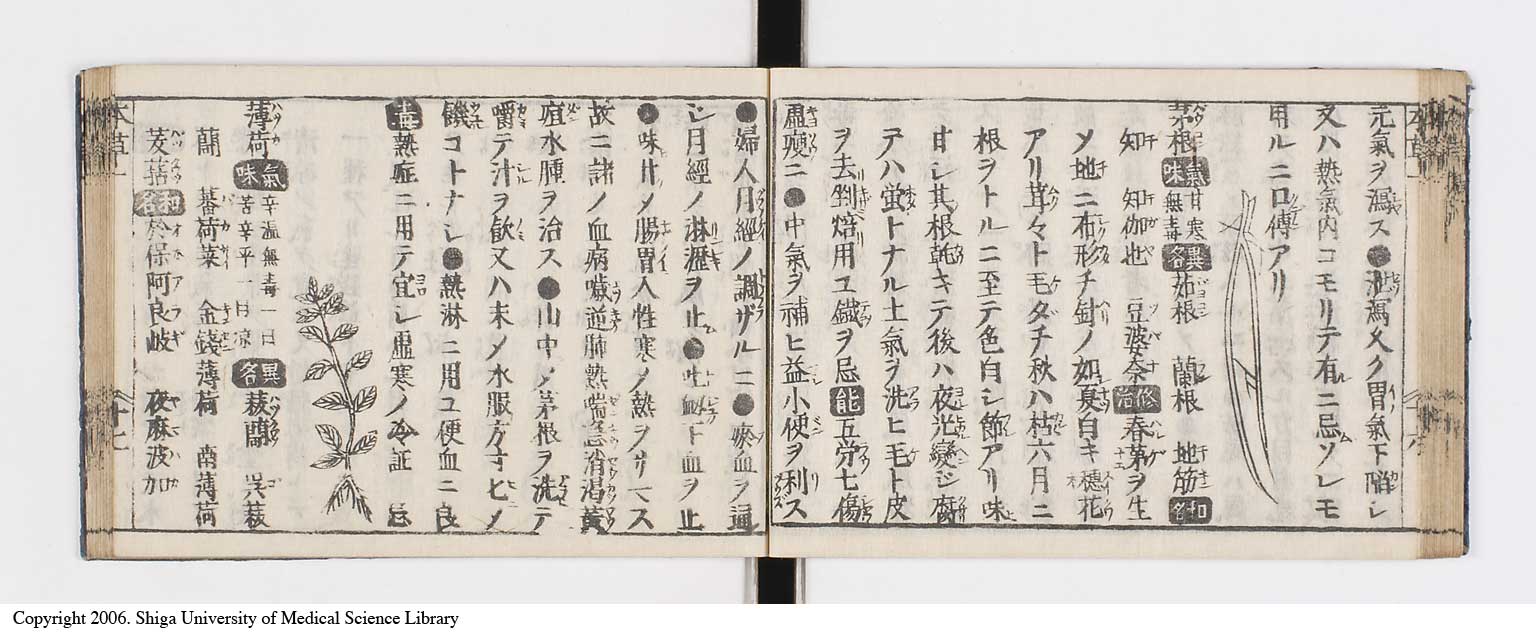 元氣ヲ瀉ス●泄瀉又ク胃氣下陥シ
又ハ熱氣内コモリテ有ニ忌ソレモ
用ルニ口傳アリ
茅根 氣味 甘寒無毒 異名 茹根 蘭根 地筋 和名
知 知伽也 豆婆奈 修治 春茅ヲ生
メ地ニ布形チ針ノ如夏白キ穂花
アリ茸々ト毛ダチ秋ハ枯六月ニ
根ヲトルニ至テ色白シ節アリ味
甘シ其根乾キテ後ハ夜光變ジ腐
テハ蛍トナル土氣ヲ洗ヒ毛ト皮
ヲ去剉焙用ユ鐵ヲ忌 能 五労七傷
虚瘦ニ●中氣ヲ補ヒ益小便ヲ利ス
●婦人月經ノ調ザルニ●瘀血ヲ通
シ月經ノ淋瀝ヲ止●吐衂下血ヲ止
●味甘メ腸胃入性寒メ熱ヲサマス
故ニ諸ノ血病噦逆肺熱喘急消渇黃
疸水腫ヲ治ス●山中ノ茅根ヲ洗テ
嚼テ汁ヲ飲又ハ末メ水服方寸匕メ
饑コトナシ●熱淋ニ用ユ便血ニ良
毒 熱症ニ用テ宜シ虚寒ノ冷証 忌
薄荷 氣味 辛温無毒一曰苦辛平一曰涼 異名 菝䕞 呉菝
蘭 蕃荷菜 金錢薄荷 南薄荷
茇䒷 和名 於保阿良岐 夜麻波加
本草一
十七
Copyright 2006. Shiga University of Medical Science Library